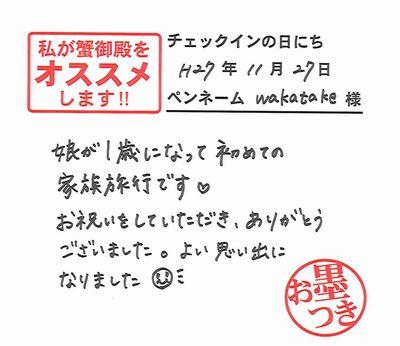 私が蟹御殿を
オススメ
します!!
チェックインの日にち
H27年11月27日
ペンネーム wakatake 様
娘が1歳になって初めての
家族旅行です♥
お祝いをしていただき、ありがとう
ございました。よい思い出に
なりました
お墨つき